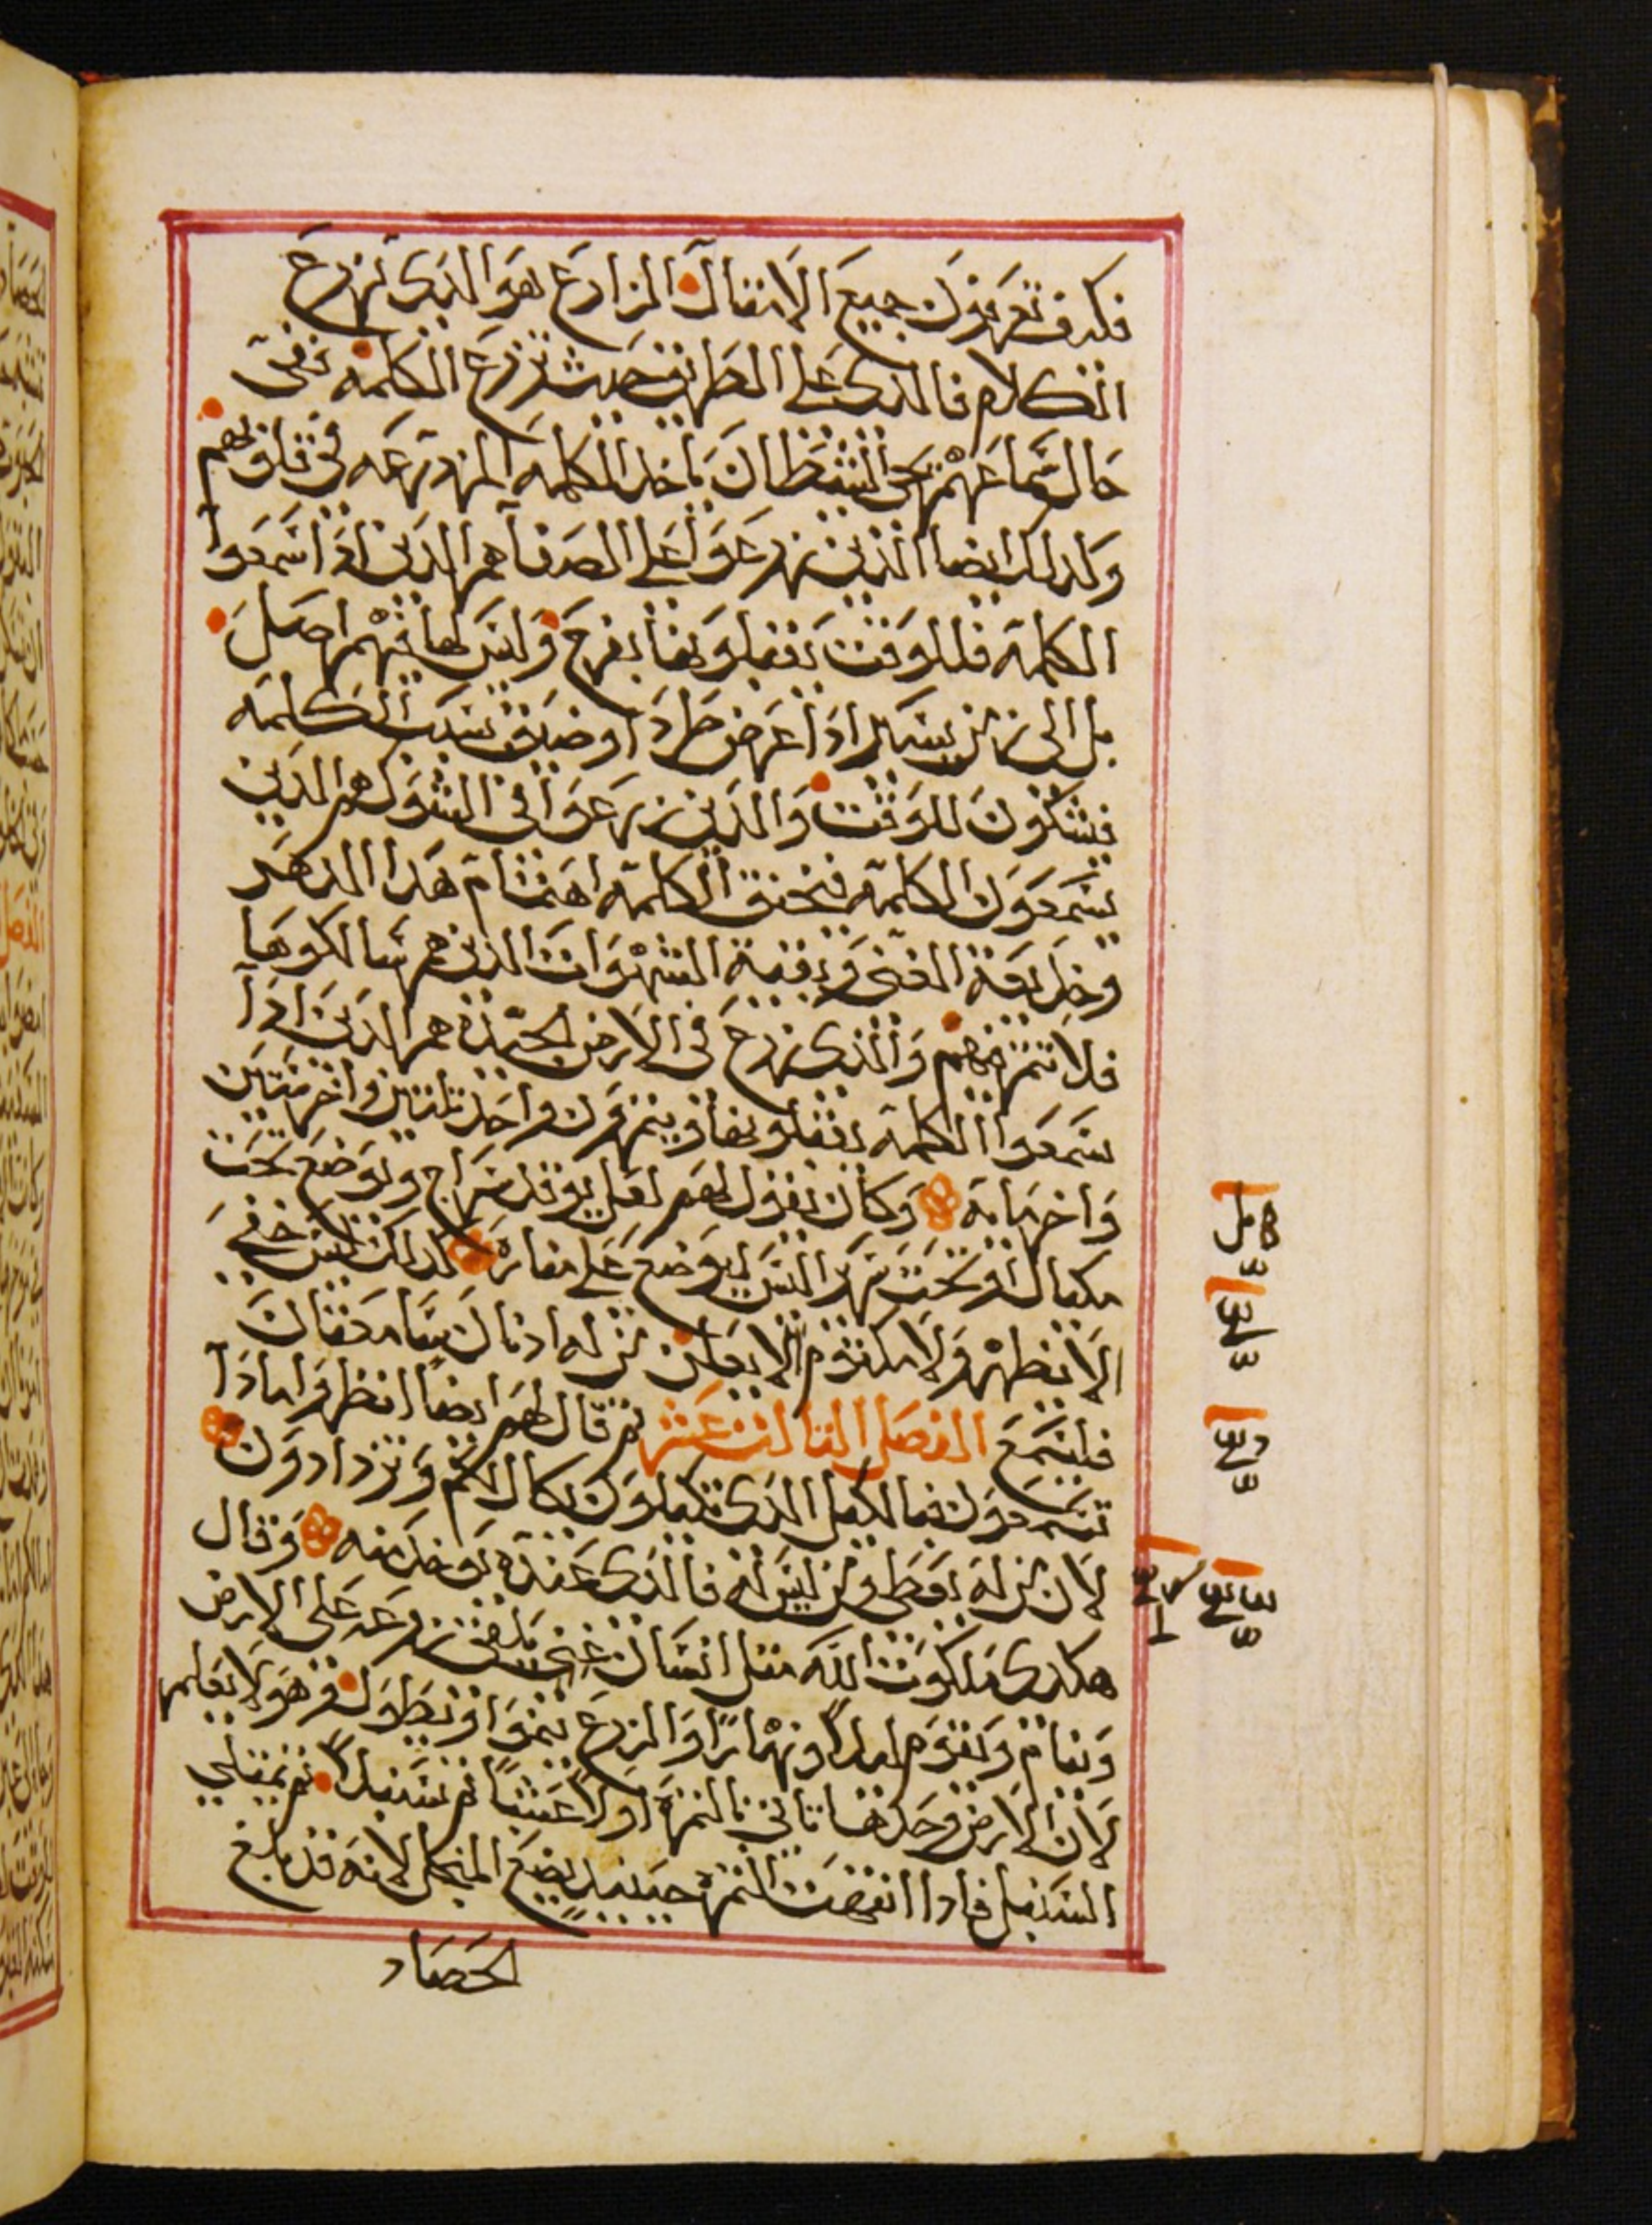 فكيف تعرفون جميع الامثال المزارع هو الذي يزرع
الكلام فالذي على الطريق حيث تزرع الكلمه ففي
حال سماعهم يجي الشيطان ياخد الكلمه المزروعه في قلوبهم
وكدلك ايضا الذين زرعوا على الصفا هم الدين اذا سمعوا
الكلمة فللوقت يقبلونها بفرح وليس لها فيهم اصل
بل الى زمن يسير ادا عرض طرد او ضيق بسبب الكلمه
فيشكون للوقت والذين زرعوا في الشوك هم الذين
يسمعون الكلمة فيخنق الكلمة اهتمام هذا الدهر
وخديعة الغنى وبقية الشهوات الذين هم سالكوها
فلا تثمر فيهم والذي زرع في الارض الجيدة هم الذين ادا
سمعوا الكلمة يقبلونها ويثمرون واحد ثلثين واخر ستين
واخر مايه وكان يقول لهم لعل يوقد سراج ويوضع تحت
مكيال او تحت سرير اليس ليوضع على مناره كدلك ليس خفي
الا يظهر ولا مكتوم الا يعلن من له ادنان سامعتان
فليسمع الفصل الثالث عشر ثم قال لهم ايضا انظروا مادا
تسمعون فبالكيل الذي تكيلون يكال لكم وتزدادون
لان من له يعطى ومن ليس له فالذي عنده يوخد منه وقال
هكدى ملكوت الله مثل انسان يلقي زرعه على الارض
وينام ويقوم ليلاً ونهاراً والزرع ينموا ويطول وهو لا يعلم
لان الارض وحدها تاتي بالثمرة اولاً عشباً ثم سنبلاً ثم يمتلي
السنبل فادا انقضت الثمرة حينيد يضع المنجل لانه قد بلغ
الحصاد